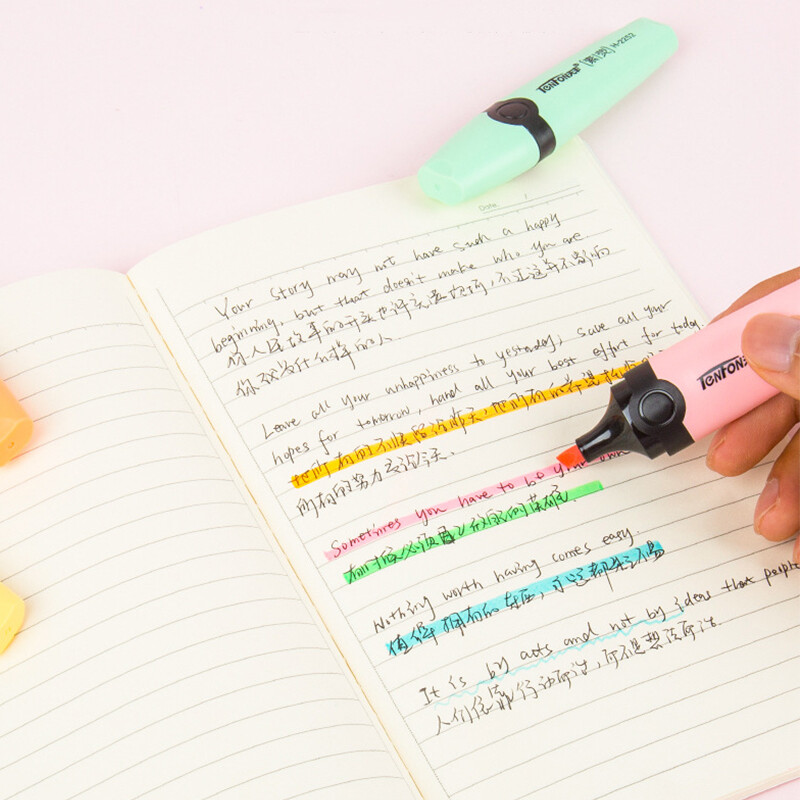 TENFON H-2252
Date /
Your story may not have such a happy
beginning, but that doesn't make who you are
的人生故事的开头也许充满坎坷,不过这并不影响
你成为什么样的人.
Leave all your unhappiness to yesterday, save all your
hopes for tomorrow, hand all your best effort for today
把所有的不快留给昨天,把所有的希望
所有的努力交给今天.
TENFON
Sometimes you have to be your own
有时候必须自己做自己的英雄.
Nothing worth having comes easy.
值得拥有的东西,
It is by acts and not by ideas that people
人们依靠行动而活,而不是想法而活.